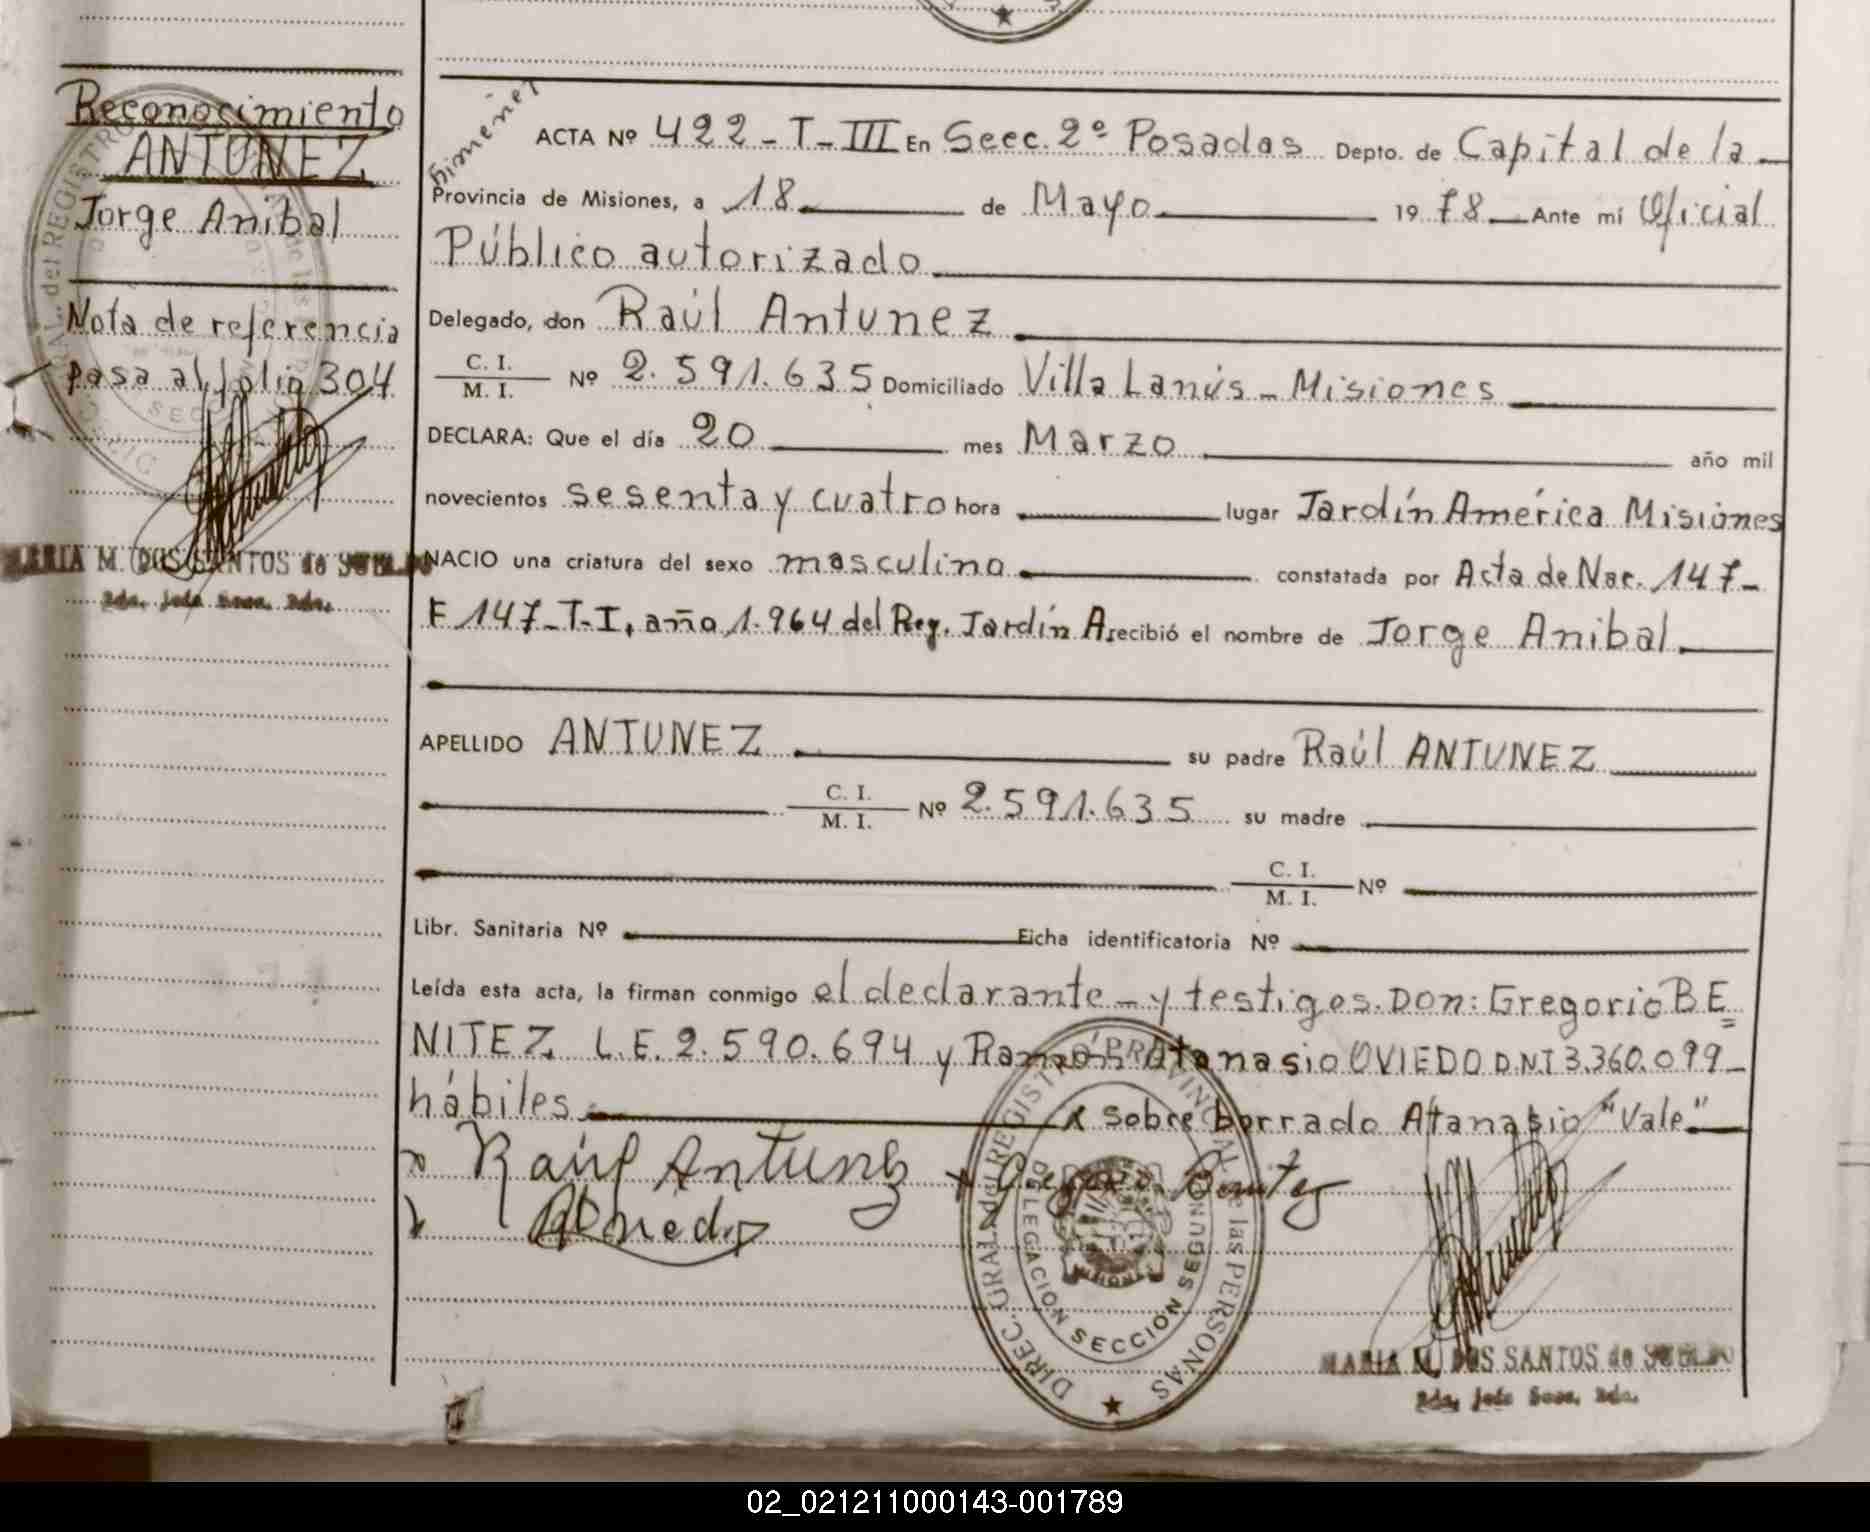 Reconocimiento
ANTUNEZ
Jorge Anibal
Nota de referencia
pasa al folio 304
MARIA M. DOS SANTOS de SUELDO
Bda. Jefe Secc. 2da.
himenez
ACTA Nº 422-T-III En Secc. 2º Posadas Depto. de Capital de la
Provincia de Misiones, a 18 de Mayo 1978 Ante mí Oficial
Público autorizado
Delegado, don Raúl Antunez
C. I.
M. I. Nº 2.591.635 Domiciliado Villa Lanús - Misiones
DECLARA: Que el día 20 mes Marzo año mil
novecientos sesenta y cuatro hora lugar Jardín América Misiones
NACIO una criatura del sexo masculino constatada por Acta de Nac. 147-
F 147-T-I, año 1.964 del Reg. Jardín A. recibió el nombre de Jorge Anibal
APELLIDO ANTUNEZ su padre Raúl ANTUNEZ
C. I.
M. I. Nº 2.591.635 su madre
C. I.
M. I. Nº
Libr. Sanitaria Nº Ficha identificatoria Nº
Leída esta acta, la firman conmigo el declarante - y testigos. Don: Gregorio BE
NITEZ L.E. 2.590.694 y Ramón Atanasio OVIEDO D.N.I 3.360.099-
hábiles. x Sobre borrado Atanasio "Vale"
x Raúl Antunez x Gregorio Benitez
DIREC. GRAL. del REGISTRO PROVINCIAL de las PERSONAS
DELEGACION SECCIÓN SEGUNDA
MISIONES
MARIA M. DOS SANTOS de SUELDO
Bda. Jefe Secc. 2da.
02_021211000143-001789